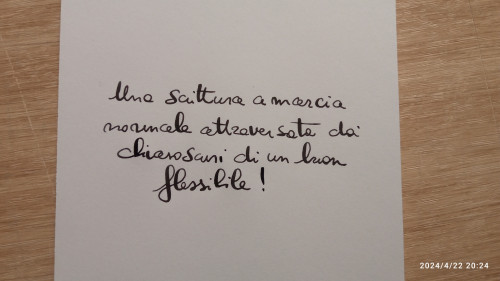 Una scittura a marcia
normale attraversata dai
chiaroscuri di un buon
flessibile!
2024/4/22 20:24